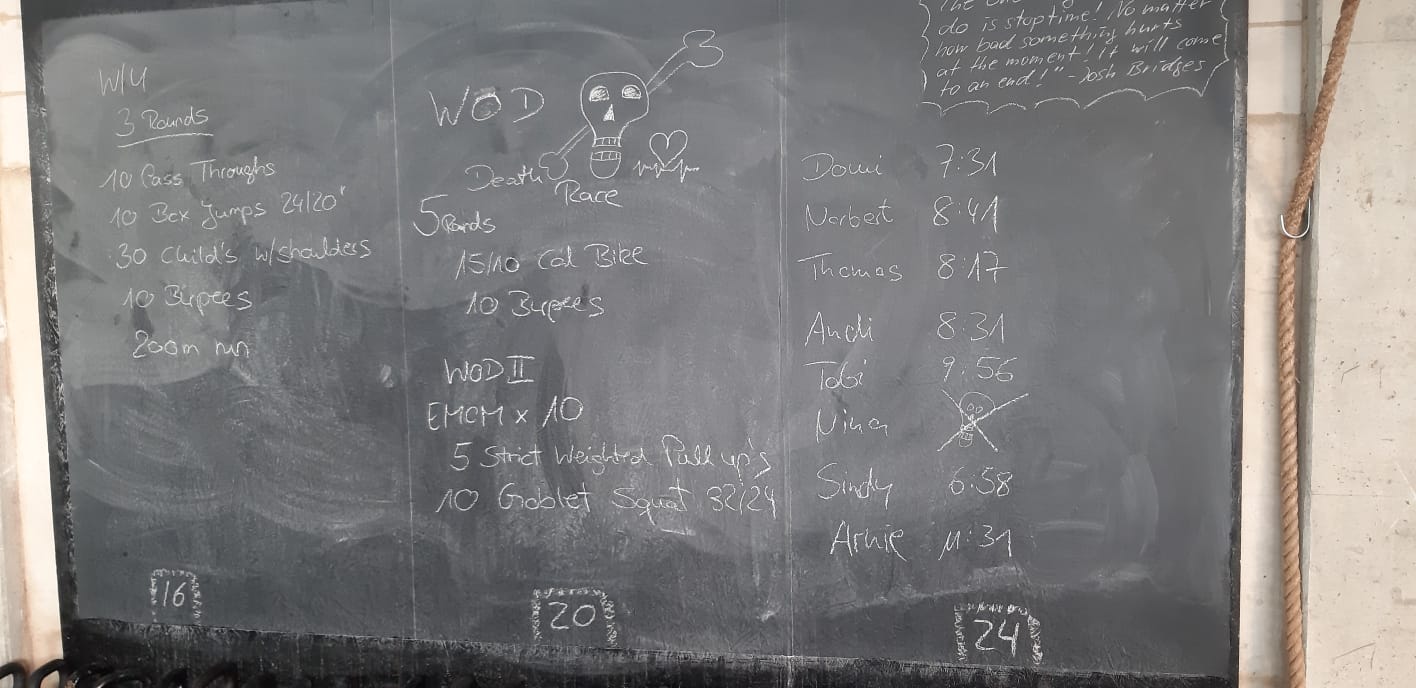 W/U
3 Rounds
10 Pass Throughs
10 Box Jumps 24/20"
30 Child's w/shoulders
10 Burpees
200m run
16
WOD
Death Race
5 Rnds
15/10 Cal Bike
10 Burpees
WOD II
EMOM x 10
5 Strict Weighted Pull up's
10 Goblet Squat 32/24
20
do is stop time! No matter
how bad something hurts
at the moment! It will come
to an end!" - Josh Bridges
Domi 7:31
Norbert 8:41
Thomas 8:17
Andi 8:31
Tobi 9:56
Nina
Sindy 6:58
Arnie 11:31
24